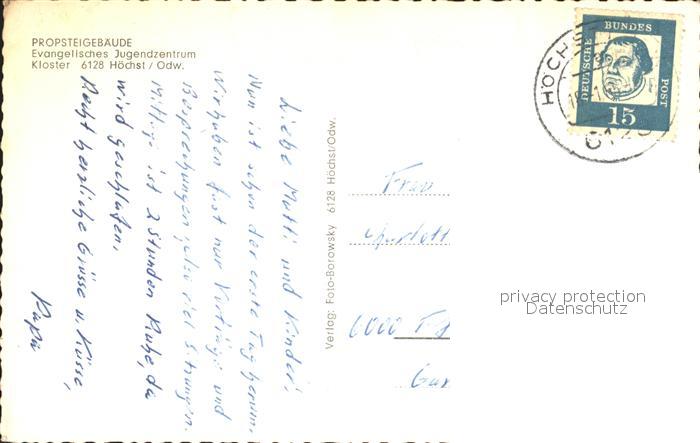 PROPSTEIGEBÄUDE
Evangelisches Jugendzentrum
Kloster 6128 Höchst / Odw.
Liebe Mutti und Kinder!
Nun ist schon der erste Tag herum.
Wir haben fast nur Vorträge und
Besprechungen, sehr viel Sitzungen.
Mittags ist 2 Stunden Ruhe, da
wird geschlafen.
Recht herzliche Grüsse u. Küsse,
Papa
Verlag: Foto-Borowsky 6128 Höchst/Odw.
Frau
6000
HÖCHS
DEUTSCHE BUNDES POST
15
privacy protection
Datenschutz